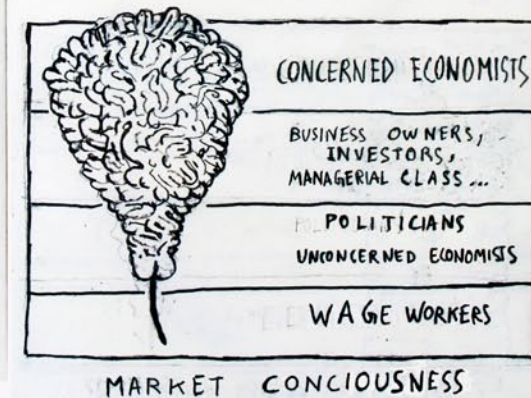 CONCERNED ECONOMISTS
BUSINESS OWNERS,
INVESTORS,
MANAGERIAL CLASS...
POLITICIANS
UNCONCERNED ECONOMISTS
WAGE WORKERS
MARKET CONCIOUSNESS